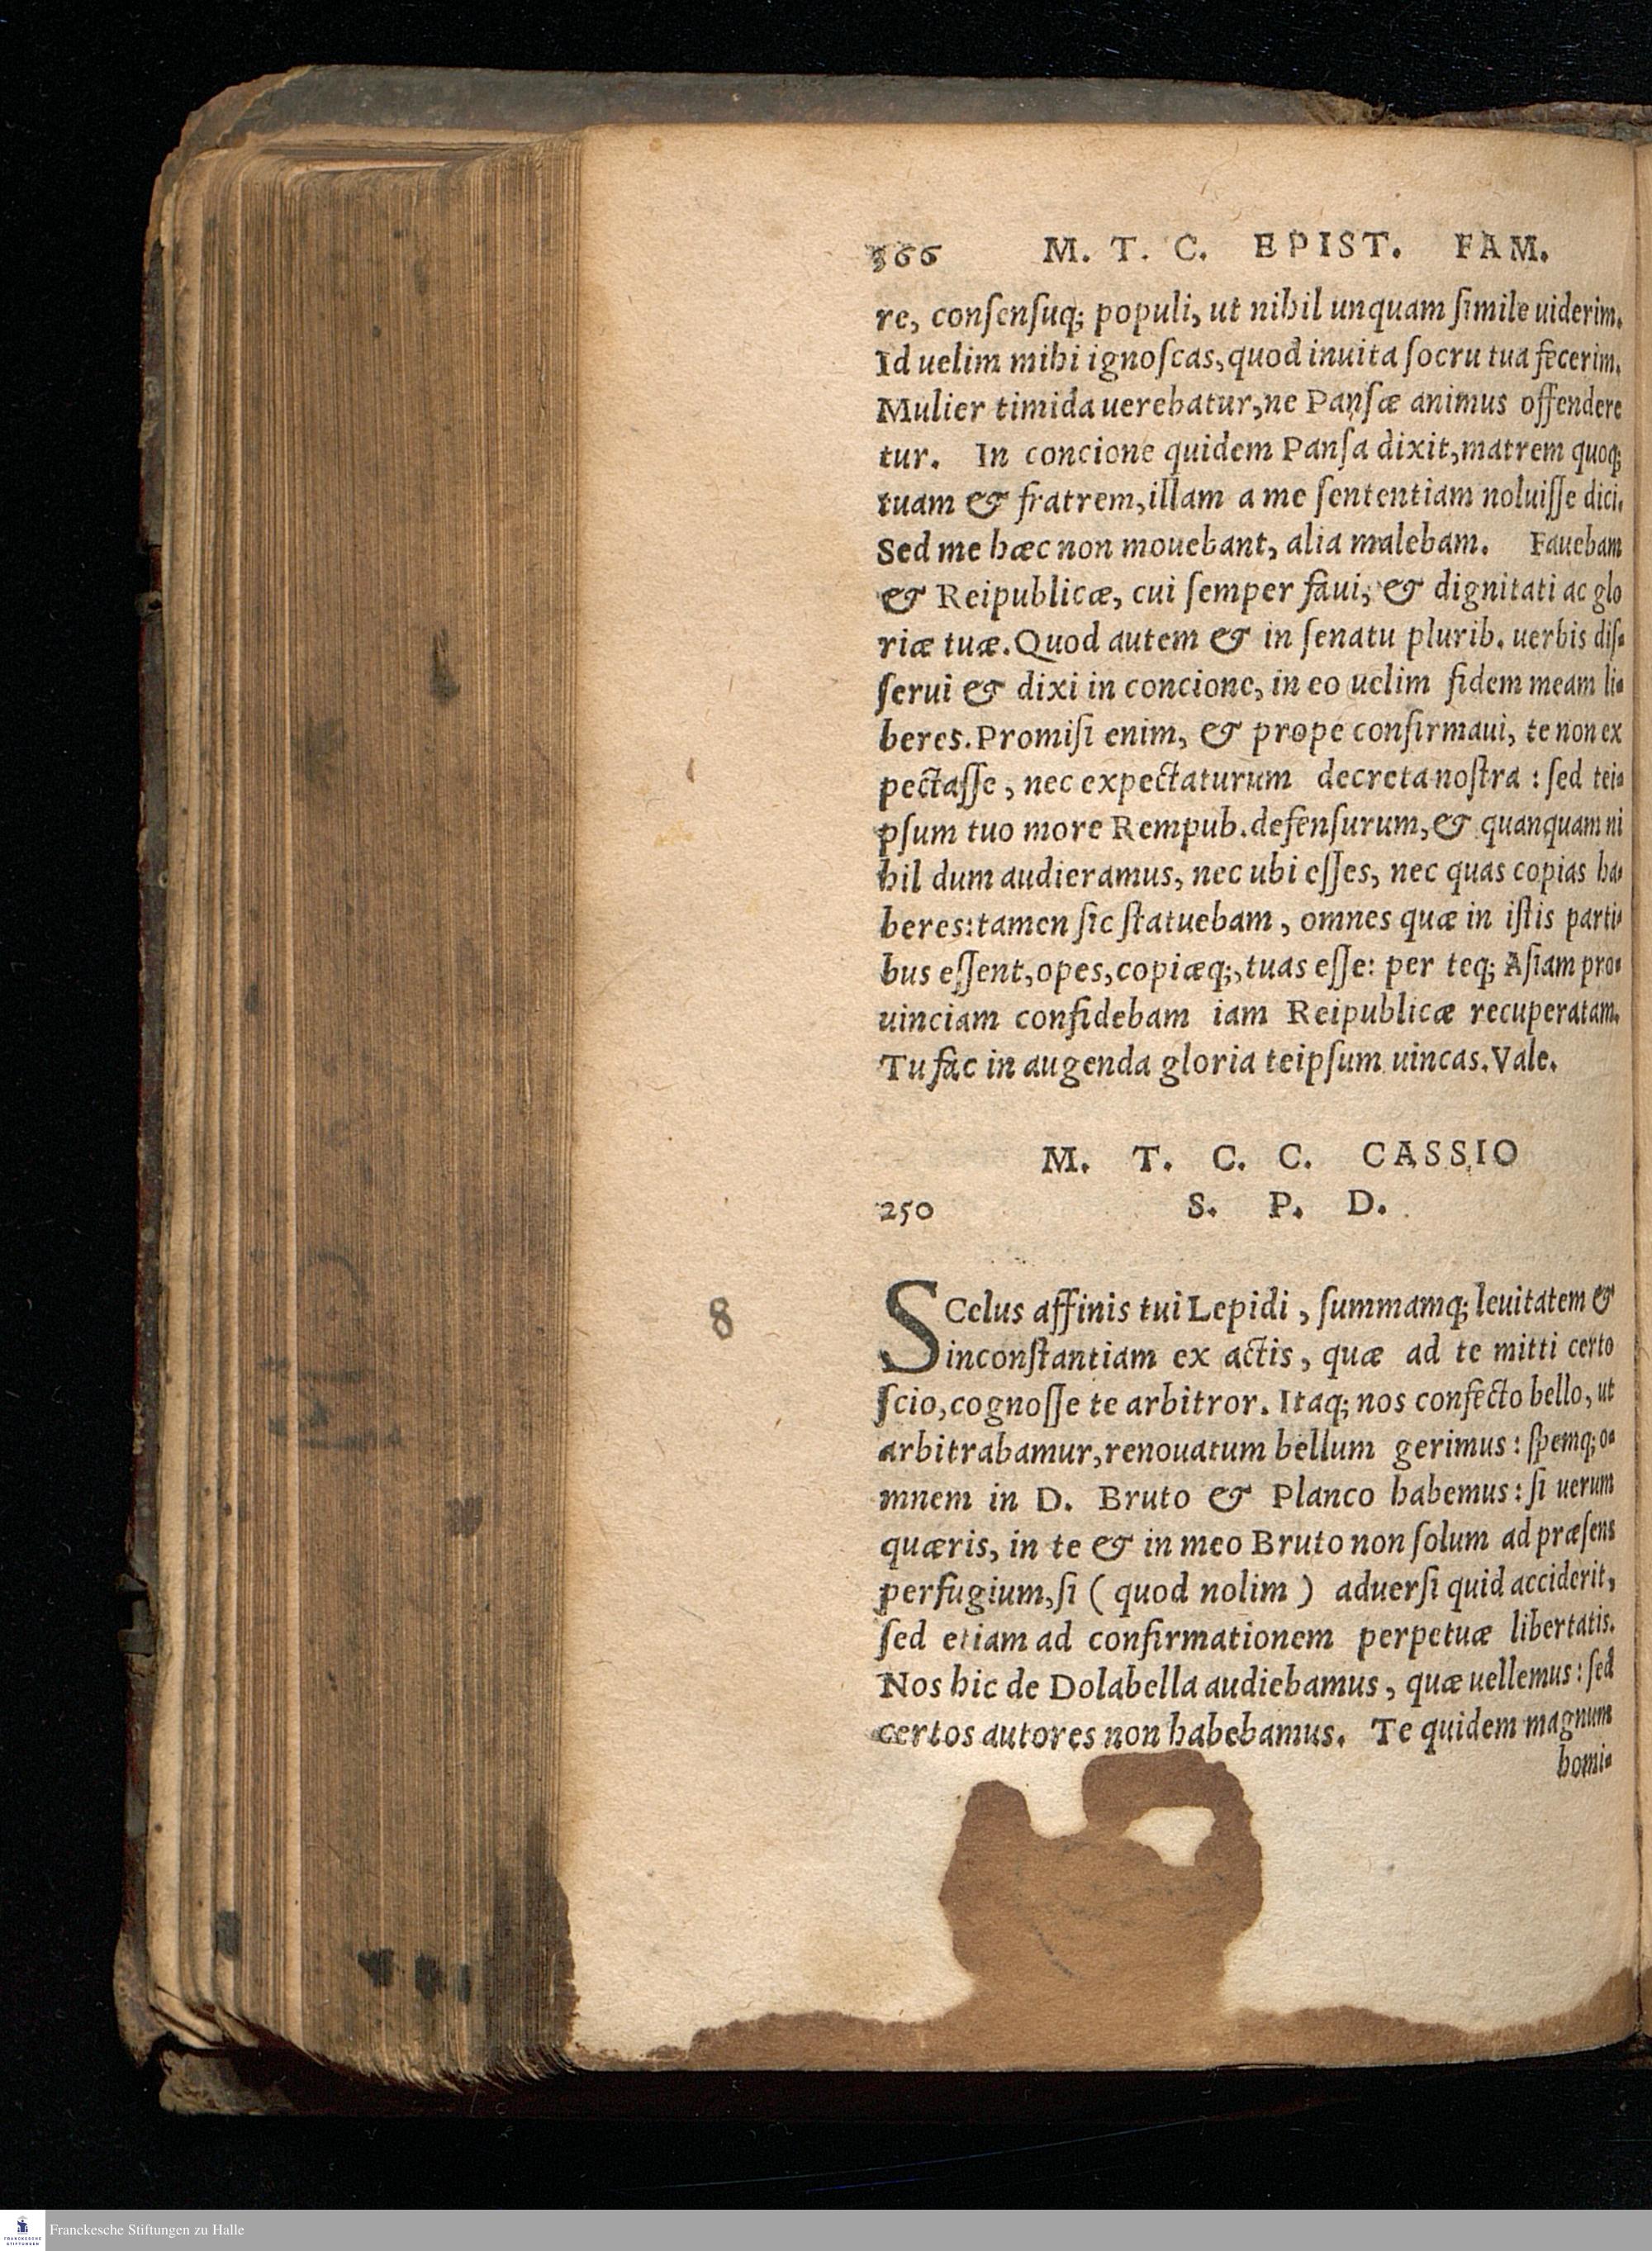 366 M. T. C. EPIST. FAM.
re, conſenſuq; populi, ut nihil unquam ſimile uiderim.
Id uelim mihi ignoſcas, quod inuita ſocru tua fecerim.
Mulier timida uerebatur, ne Panſæ animus offendere
tur. In concione quidem Panſa dixit, matrem quoq;
tuam & fratrem, illam a me ſententiam noluiſſe dici.
Sed me hæc non mouebant, alia malebam. Fauebam
& Reipublicæ, cui ſemper faui, & dignitati ac glo
riæ tuæ. Quod autem & in ſenatu plurib. uerbis diſ-
ſerui & dixi in concione, in eo uelim fidem meam li-
beres. Promiſi enim, & prope confirmaui, te non ex
pectaſſe, nec expectaturum decreta noſtra : ſed tei-
pſum tuo more Rempub. defenſurum, & quanquam ni
hil dum audieramus, nec ubi eſſes, nec quas copias ha-
beres: tamen ſic ſtatuebam, omnes quæ in iſtis parti-
bus eſſent, opes, copiæq;, tuas eſſe: per teq; Aſiam pro-
uinciam confidebam iam Reipublicæ recuperatam.
Tu fac in augenda gloria teipſum uincas. Vale.
M. T. C. C. CASSIO
250 S. P. D.
8
SCelus affinis tui Lepidi, ſummamq; leuitatem &
inconſtantiam ex actis, quæ ad te mitti certo
ſcio, cognoſſe te arbitror. Itaq; nos confecto bello, ut
arbitrabamur, renouatum bellum gerimus : ſpemq; o-
mnem in D. Bruto & Planco habemus : ſi uerum
quæris, in te & in meo Bruto non ſolum ad præſens
perfugium, ſi ( quod nolim ) aduerſi quid acciderit,
ſed etiam ad confirmationem perpetuæ libertatis.
Nos hic de Dolabella audiebamus, quæ uellemus : ſed
certos autores non habebamus. Te quidem magnum
homi-
Franckesche Stiftungen zu Halle
FRANCKESCHE
STIFTUNGEN